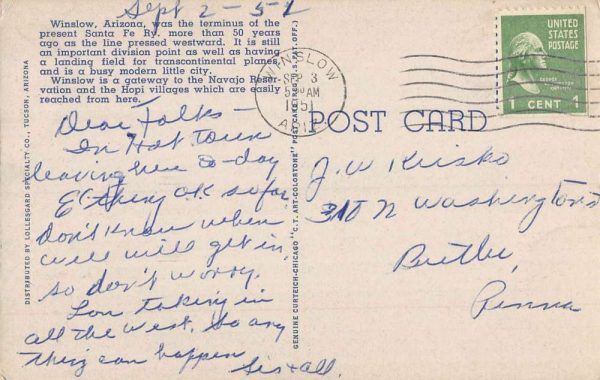 Sept 2-51
Winslow, Arizona, was the terminus of the
present Santa Fe Ry. more than 50 years
ago as the line pressed westward. It is still
an important division point as well as having
a landing field for transcontinental planes,
and is a busy modern little city.
Winslow is a gateway to the Navajo Reser-
vation and the Hopi villages which are easily
reached from here.
Dear Folks—
In Hot town
leaving here to-day
E'thing OK so far
don't know when
will get in,
so don't worry.
Lou taking in
all the West. So any
thing can happen
Sis & all.
DISTRIBUTED BY LOLLESGARD SPECIALTY CO., TUCSON, ARIZONA
GENUINE CURTEICH-CHICAGO "C.T. ART-COLORTONE" POST CARD (REG. U.S. PAT. OFF.)
WINSLOW
SEP 3
5 AM
1951
ARIZ
UNITED
STATES
POSTAGE
1 CENT 1
POST CARD
J. W. Krisko
310 N Washington St
Butler,
Penna